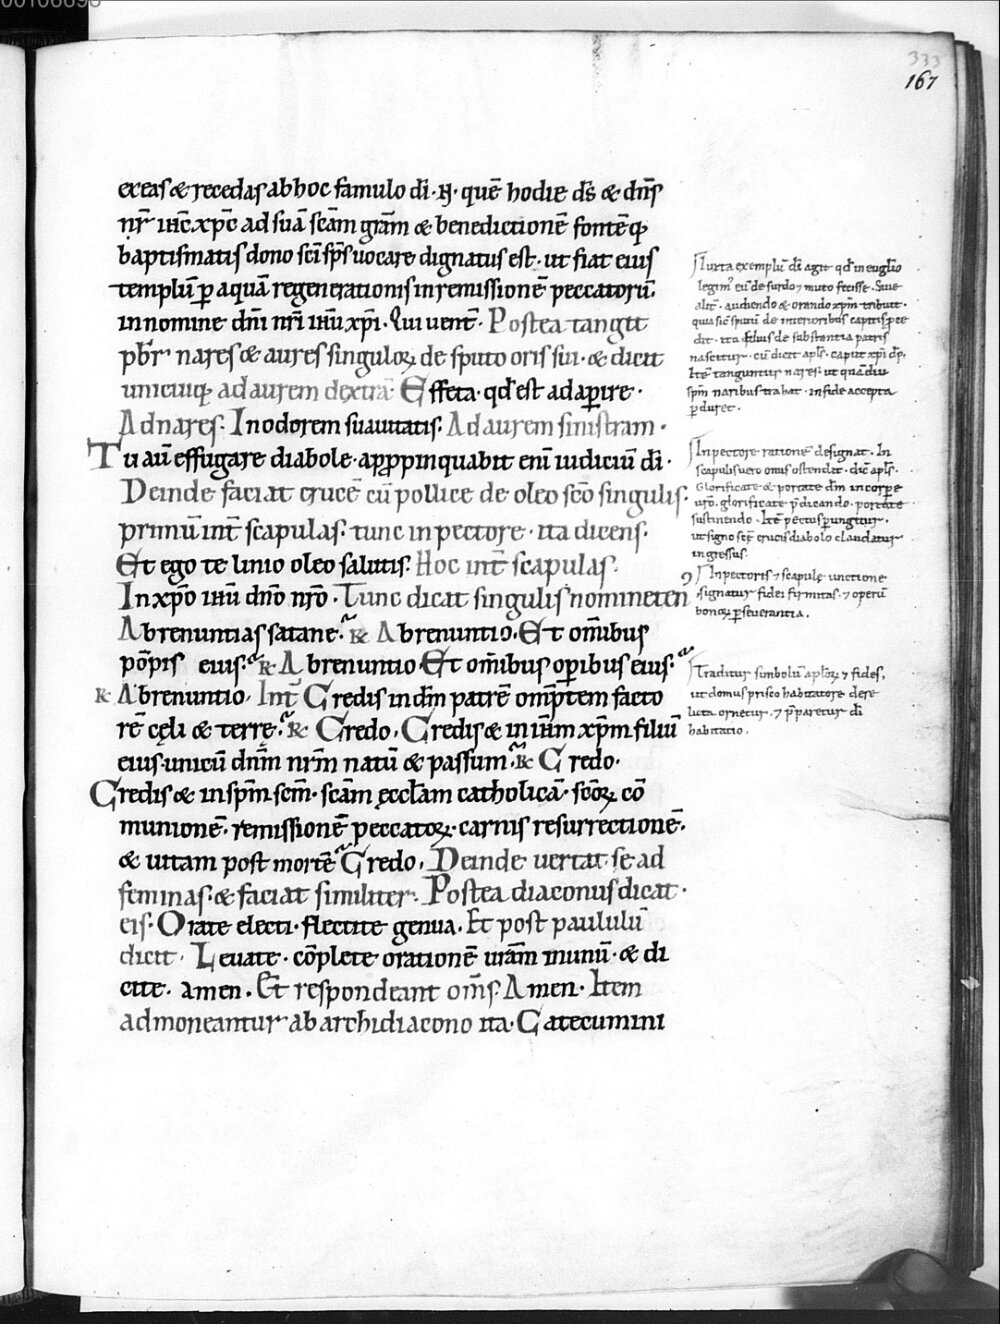 00106698
333
167
exeas & recedas ab hoc famulo dī .N. quē hodie ds̄ & dn̄s
nr̄ ih̄c xp̄c ad suā sc̄am grām & benedictionē fontēq;
baptismatis dono sc̄i sp̄s uocare dignatus est. ut fiat eius
templū p aquā regenerationis in remissionē peccatorū.
in nomine dn̄i nr̄i ih̄u xp̄i. Qui uent̄. Postea tangit
pbr̄ nares & aures singuloꝝ de sputo oris sui. & dicit
unicuiq; ad aurem dextrā Effeta. qd̄ est adapire.
Ad nares. In odorem suauitatis. Ad aurem sinistram.
Tu aū effugare diabole. appropinquabit eni iudiciū dī.
Deinde faciat crucē cū pollice de oleo sc̄o singulis.
primū int̄ scapulas. tunc in pectore. ita dicens.
Et ego te linio oleo salutis. Hoc int̄ scapulas.
In xp̄o ih̄u dn̄o nr̄o. Tunc dicat singulis nomine ten
Abrenuntias satane. R̄ Abrenuntio. Et om̄ibus
pōpis eius. R̄ Abrenuntio Et om̄ibus opibus eius.
R̄ Abrenuntio. Int̄ Credis in dm̄ patrē omp̄tem facto
rē cęli & terrę. R̄ Credo. Credis & in ih̄m xp̄m filiū
eius unicū dn̄m nr̄m natū & passum. R̄ Credo.
Credis & in sp̄m sc̄m. sc̄am ęccl̄am catholicā. sc̄oꝝ cō
munionē. remissionē peccatoꝝ. carnis resurrectionē.
& uitam post mortē Credo. Deinde uertat se ad
feminas. & faciat similiter. Postea diaconus dicat.
eis. Orate electi. flectite genua. Et post paululū
dicit. Leuate. cōplete orationē urām in unū. & di
cite. amen. Et respondeant om̄s. Amen. Item
admoneantur ab archidiacono ita. Catecumini
Iuxta exemplū dī agit qd̄ in euglio
legim' eū de surdo ⁊ muto fecisse. Siue
alit̄. audiendo & orando xp̄m tribuit.
quia sic sputū de interioribus capitis p̄ce
dit. ita filius de substantia patris
nascitur. cū dicit apl̄s. caput xp̄i ds̄.
Itē tanguntur nares. ut quādiu
sp̄m naribus trahat. in fide accepta
p duret.
In pectore rationē designat. In
scapulis uero onus ostendit. dic̄ apl̄s.
Glorificate & portate dm̄ in corpe
uro. glorificate p̄dicando. portate
sustinendo. Itē pectus pungitur.
ut signo scę crucis diabolo claudatur
ingressus.
In pectoris ⁊ scapulę unctione
signatur fidei firmitas. ⁊ operū
bonoꝝ pseuerantia.
Traditur simbolū aploꝝ ⁊ fides,
ut domus prisco habitatore dere
licta ornetur. ⁊ p̄paretur dī
habitatio.